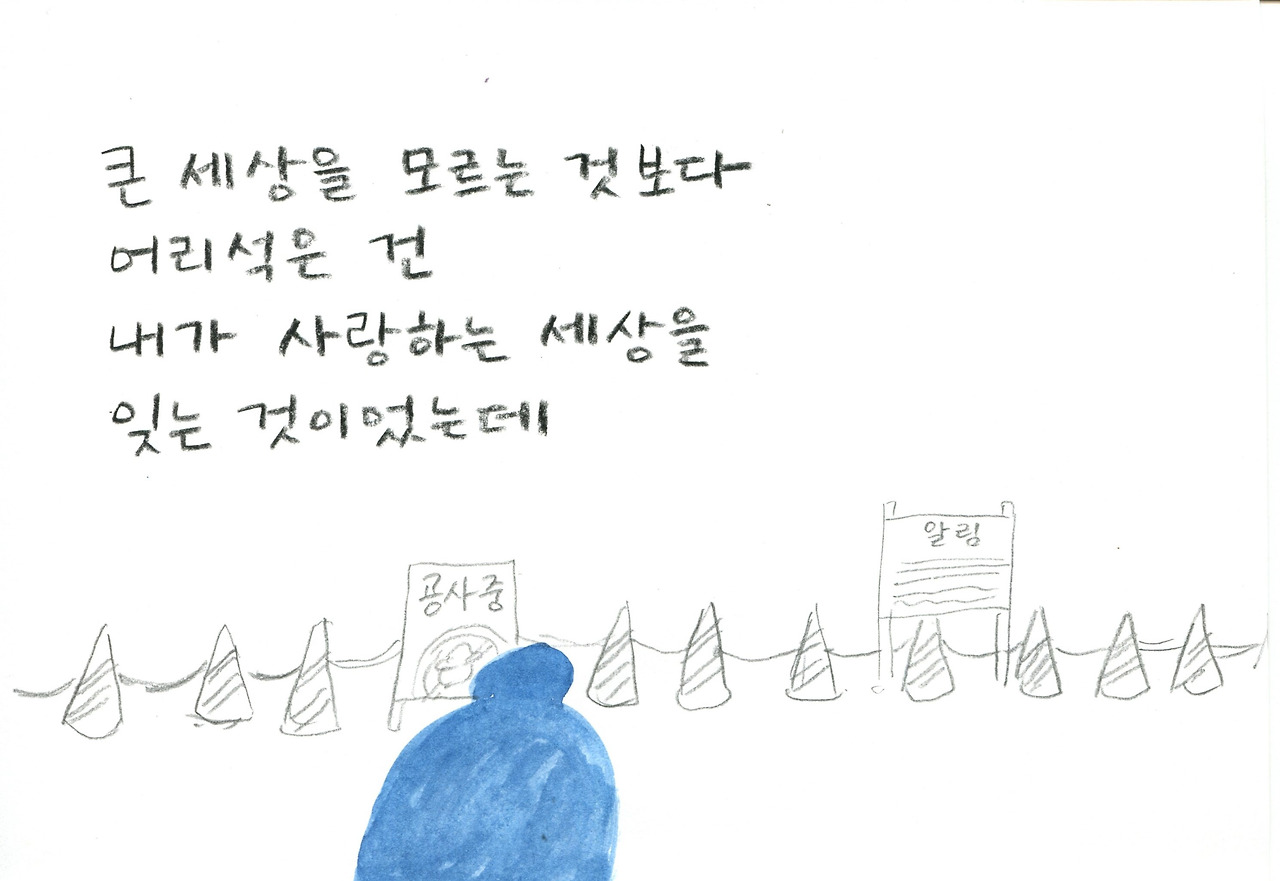 큰 세상을 모르는 것보다
어리석은 건
내가 사랑하는 세상을
잊는 것이었는데
공사중
알림